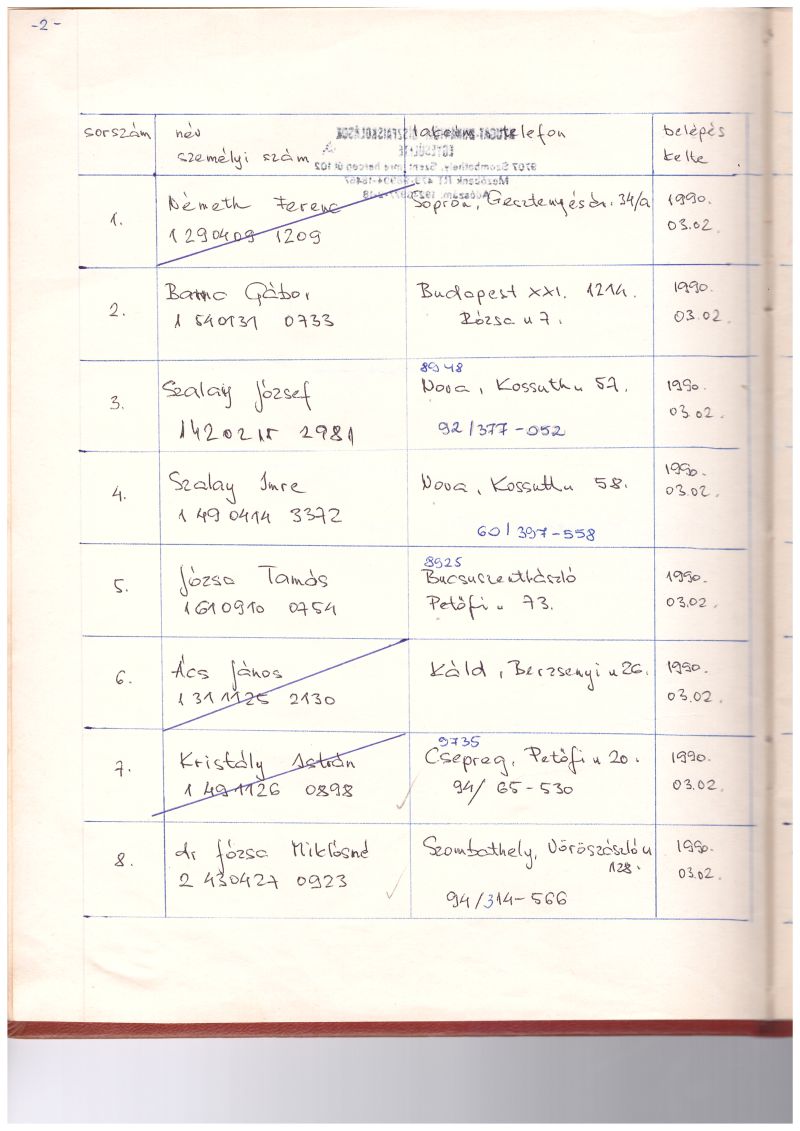 -2-
sorszám név lakcím, telefon belépés
személyi szám kelte
EGYESÜLETE
9707 Szombathely, Szent Imre herceg út 102
1. Németh Ferenc Sopron, Gesztenyés kr. 34/a 1990.
1 290409 1209 03.02.
2. Barna Gábor Budapest XXI. 1214. 1990.
1 540131 0733 Rózsa u 7. 03.02.
8948
3. Szalay József Nova, Kossuth u 57. 1990.
1420215 2981 92/377-052 03.02.
4. Szalay Imre Nova, Kossuth u 58. 1990.
1 490414 3372 03.02.
60/397-558
8925
5. Józsa Tamás Bucsuszentlászló 1990.
1610910 0754 Petőfi u 73. 03.02.
6. Ács János Káld, Berzsenyi u 26. 1990.
1 311125 2130 03.02.
9735
7. Kristály István Csepreg, Petőfi u 20. 1990.
1 491126 0898 94/ 65-530 03.02.
8. dr Józsa Miklósné Szombathely, Vöröszászló u 1990.
128.
2 430427 0923 03.02.
94/314-566